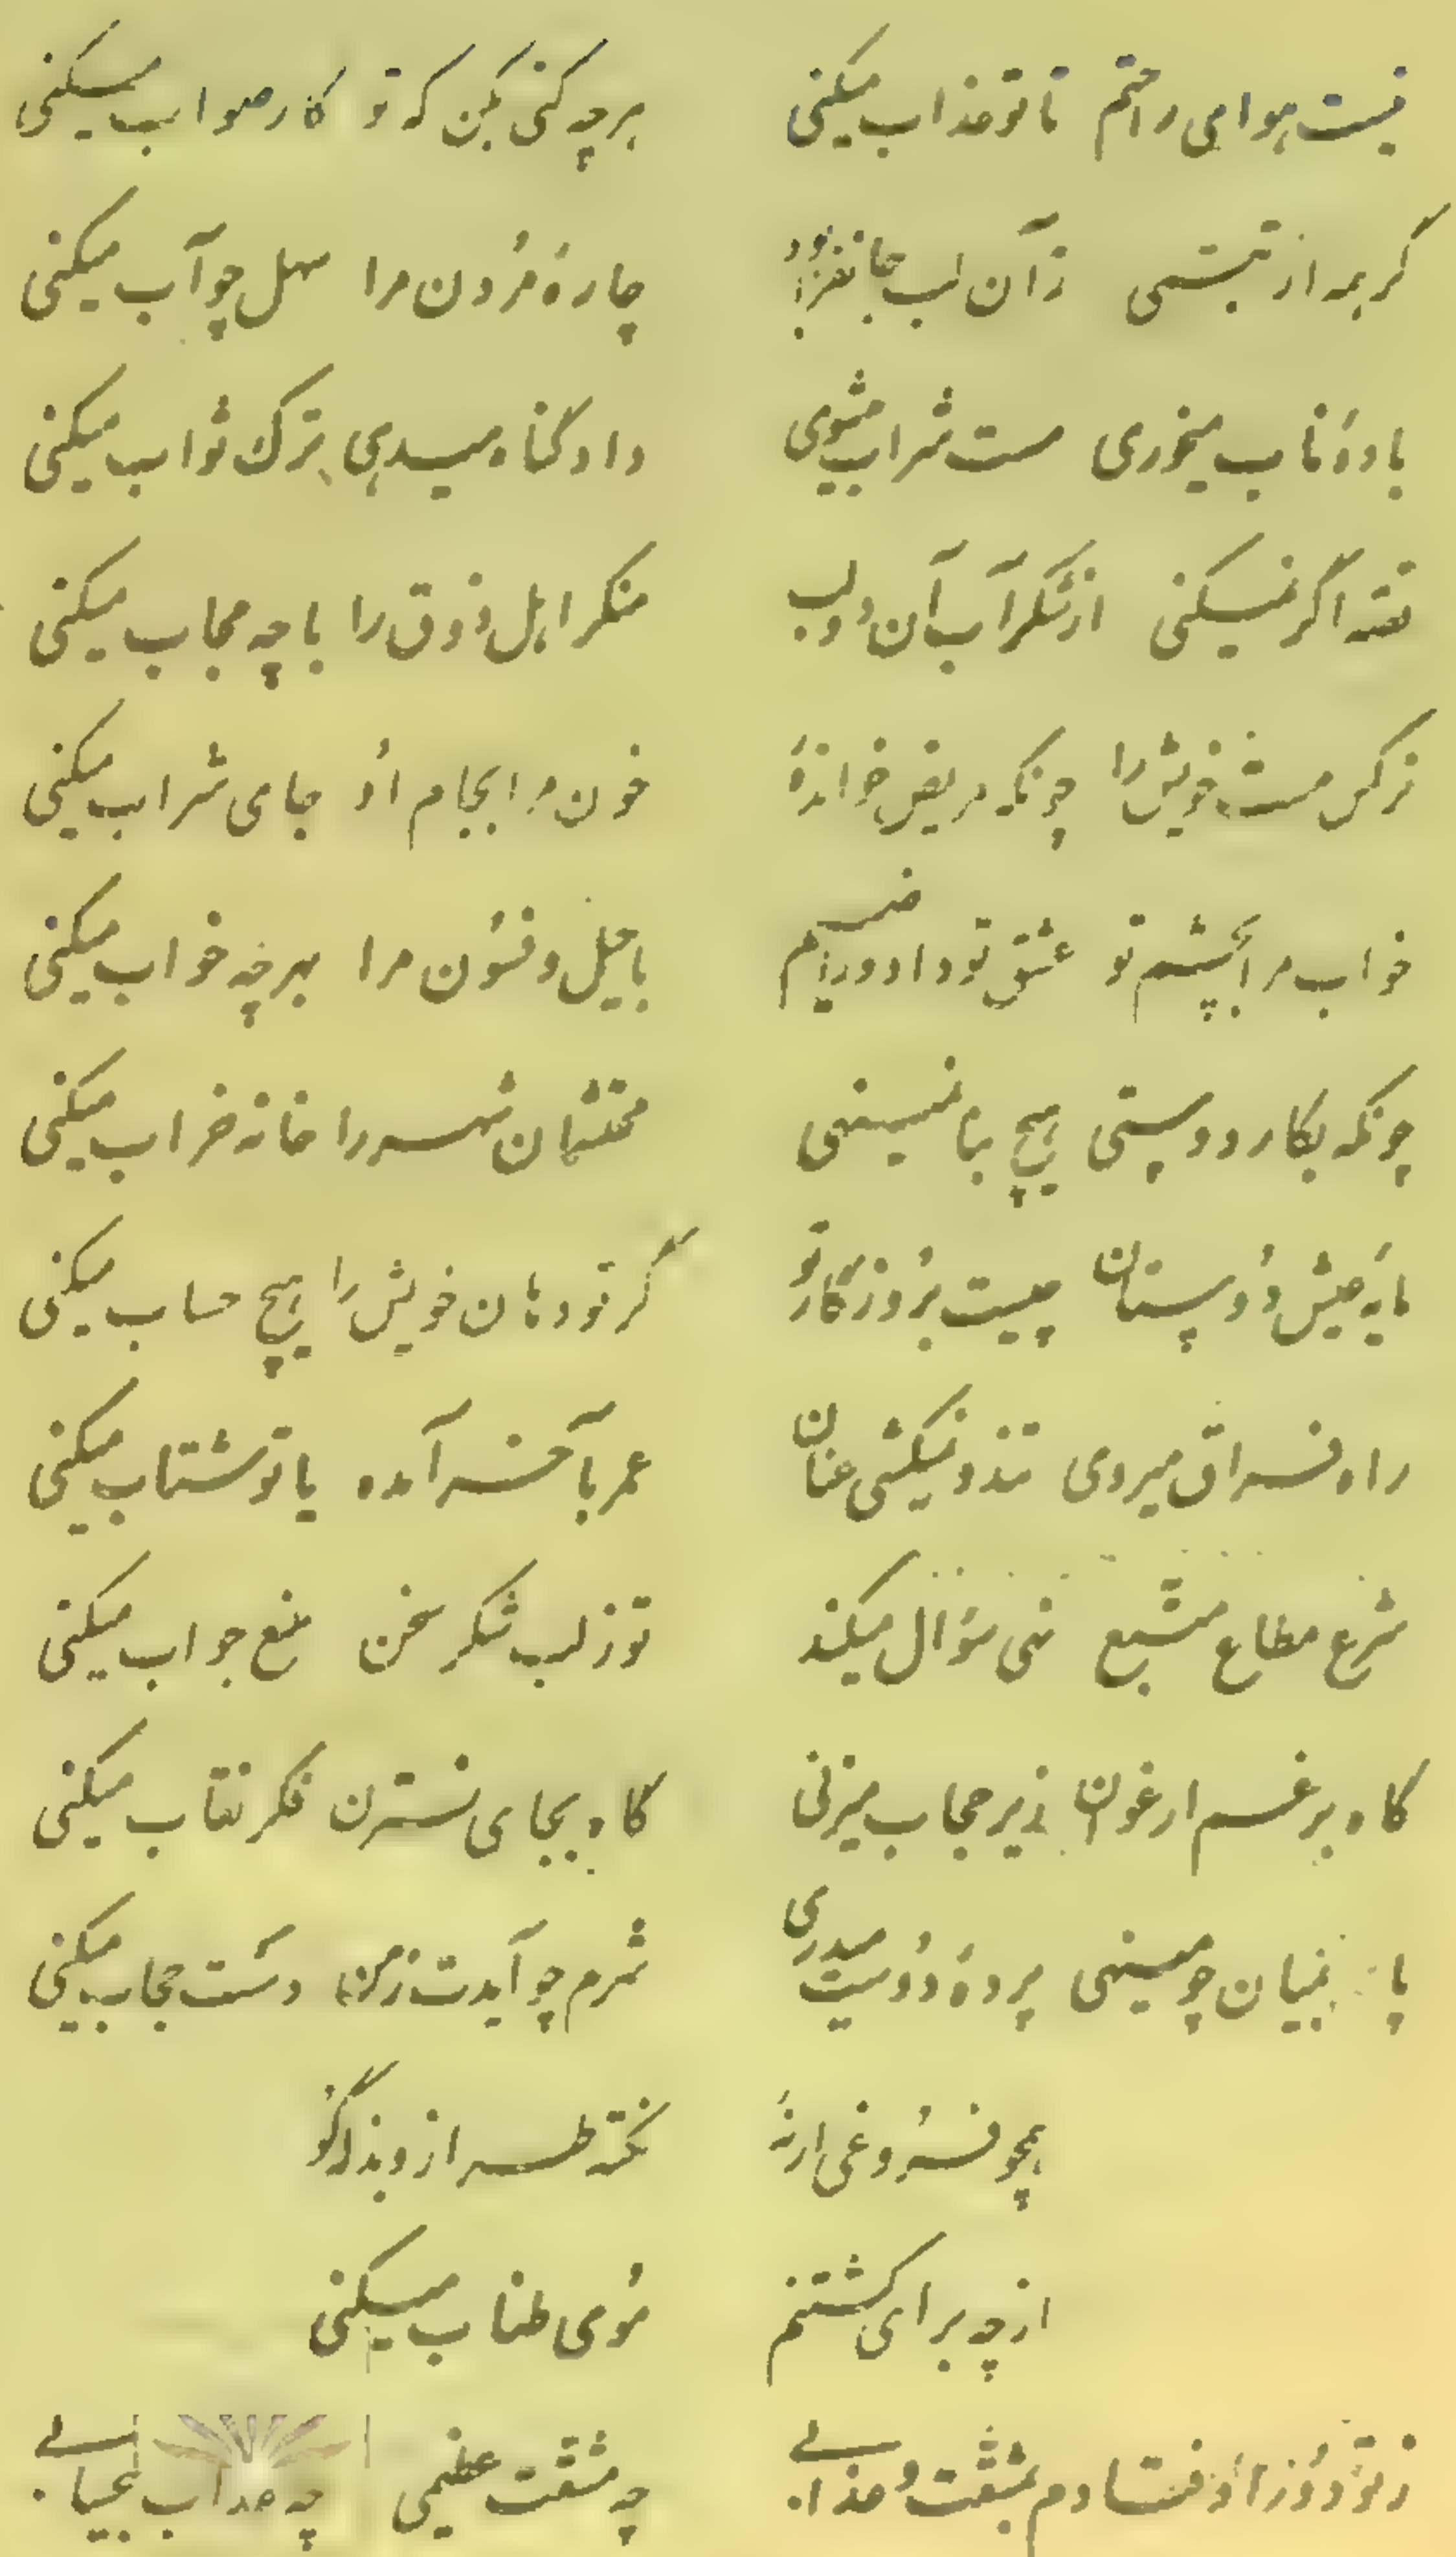 نیست هوای راحتم تا تو عذاب میکنی هرچه کنی بکن که تو کار صواب میکنی
گر همه از تبسمی زآن لب جانفزا بود چارهٔ مُردن مرا سهل چو آب میکنی
بادهٔ ناب میخوری مست شراب میشوی داد گناه میدهی ترک ثواب میکنی
نقته اگر نمیکنی از شکرآب آن دو لب منکر اهل ذوق را با چه مجاب میکنی
نرگس مست خویش را چونکه مریض خواندهٔ خون مرا بجام اُو جای شراب میکنی
خواب مرا بچشم تو عشق تو داد و راضیم با حیل و فسُون مرا بهر چه خواب میکنی
چونکه بکار دوستی هیچ بها نمینهی محتشمان شهر را خانه خراب میکنی
مایهٔ عیش دُوستان چیست برُوزگار تو گر تو دهان خویش را هیچ حساب میکنی
راه فراق میروی تند و نمیکشی عنان عمر بآخر آمده یا تو شتاب میکنی
شرع مطاع متّبع نهی سؤال میکند تو ز لب شکر سخن منع جواب میکنی
گاه برغم ارغوان زیر حجاب میزنی گاه بجای نسترن فکر نقاب میکنی
پا بمیان چو مینهی پردهٔ دُوست میدری شرم چو آیدت ز من دست حجاب میکنی
همچو فرُوغی ار نهٔ نکته طراز و بذله گو
از چه برای کشتنم مُوی طناب میکنی
ز تو دُور اُوفتادم بمشقت و عذابی چه مشقت عظیمی چه عذاب بیحسابی